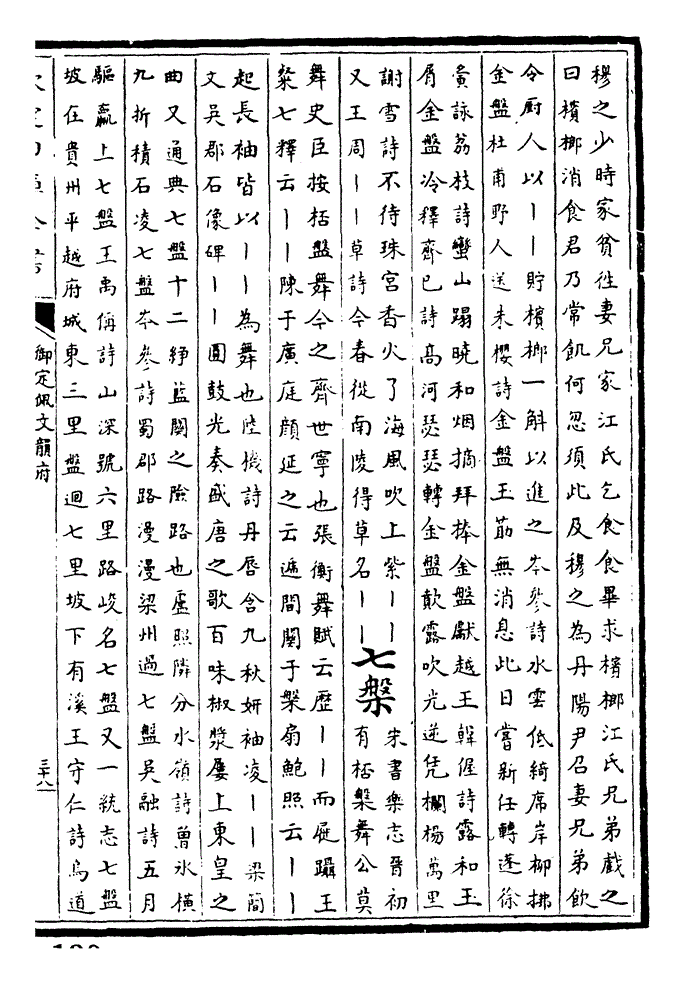 穆之少時家貧往妻兄家江氏乞食食畢求檳榔江氏兄弟戲之
曰檳榔消食君乃常飢何忽須此及穆之為丹陽尹召妻兄弟飲
令厨人以丨丨貯檳榔一斛以進之岑參詩水雲低綺席岸柳拂
金盤杜甫野人送朱櫻詩金盤玉筯無消息此日嘗新任轉蓬徐
夤詠荔枝詩蠻山蹋曉和烟摘拜捧金盤獻越王韓偓詩露和玉
屑金盤冷釋齊已詩高河瑟瑟轉金盤歕露吹光逆凭欄楊萬里
謝雪詩不待珠宮香火了海風吹上紫丨丨
又王周丨丨草詩今春從南陵得草名丨丨
七槃
宋書樂志晉初
有杯槃舞公莫
舞史臣按杯盤舞今之齊世寧也張衡舞賦云歷丨丨而屣躡王
粲七釋云丨丨陳于廣庭顔延之云遞間關于槃扇鮑照云丨丨
起長袖皆以丨丨為舞也陸機詩丹唇含九秋妍袖凌丨丨梁簡
文吳郡石像碑丨丨圓鼓光奏盛唐之歌百味椒漿屢上東皇之
曲又通典七盤十二繂藍關之險路也盧照隣分水嶺詩曾氷橫
九折積石凌七盤岑參詩蜀郡路漫漫梁州過七盤吳融詩五月
驅羸上七盤王禹偁詩山深號六里路峻名七盤又一統志七盤
坡在貴州平越府城東三里盤迴七里坡下有溪王守仁詩鳥道
御定佩文韻府
三十八